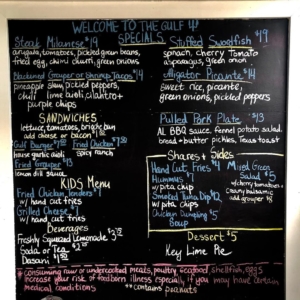 WELCOME TO THE GULF !!
SPECIALS
Steak Milanese $14
arugula, tomatoes, pickled green beans,
fried egg, chimi churri, green onions
Stuffed Swordfish $19
spinach, cherry tomato
asparagus, green onion
Blackened Grouper or Shrimp Tacos $14
pineapple slaw, pickled peppers,
lime aioli, cilantro +
purple chips
Alligator Picante $14
sweet rice, picante,
green onions, pickled peppers
SANDWICHES
lettuce, tomatoes, brioche bun
add cheese or bacon
Gulf Burger
house garlic aioli
Fried Chicken
spicy ranch
Fried Grouper
lemon dill sauce
Pulled Pork Plate $13
AL BBQ sauce, fennel potato salad,
bread + butter pickles, Texas toast
KIDS Menu
Fried Chicken Tenders
w/ hand cut fries
Grilled Cheese
w/ hand cut fries
Shares + Sides
Hand Cut Fries $4
Hummus
w/ pita chip
Smoked Tuna Dip $12
w/ pita chips
Chicken Dumpling $5
Soup
Mixed Green
Salad $5
w/ cherry tomatoes +
creamy balsamic
add grouper
Beverages
Freshly Squeezed Lemonade
Soda or Tea
Dasani
Dessert $5
Key Lime Pie
* consuming raw or undercooked meats, poultry, seafood, shellfish, eggs
increase your risk of foodborn illness especially if you may have certain
medical conditions ** contains peanuts